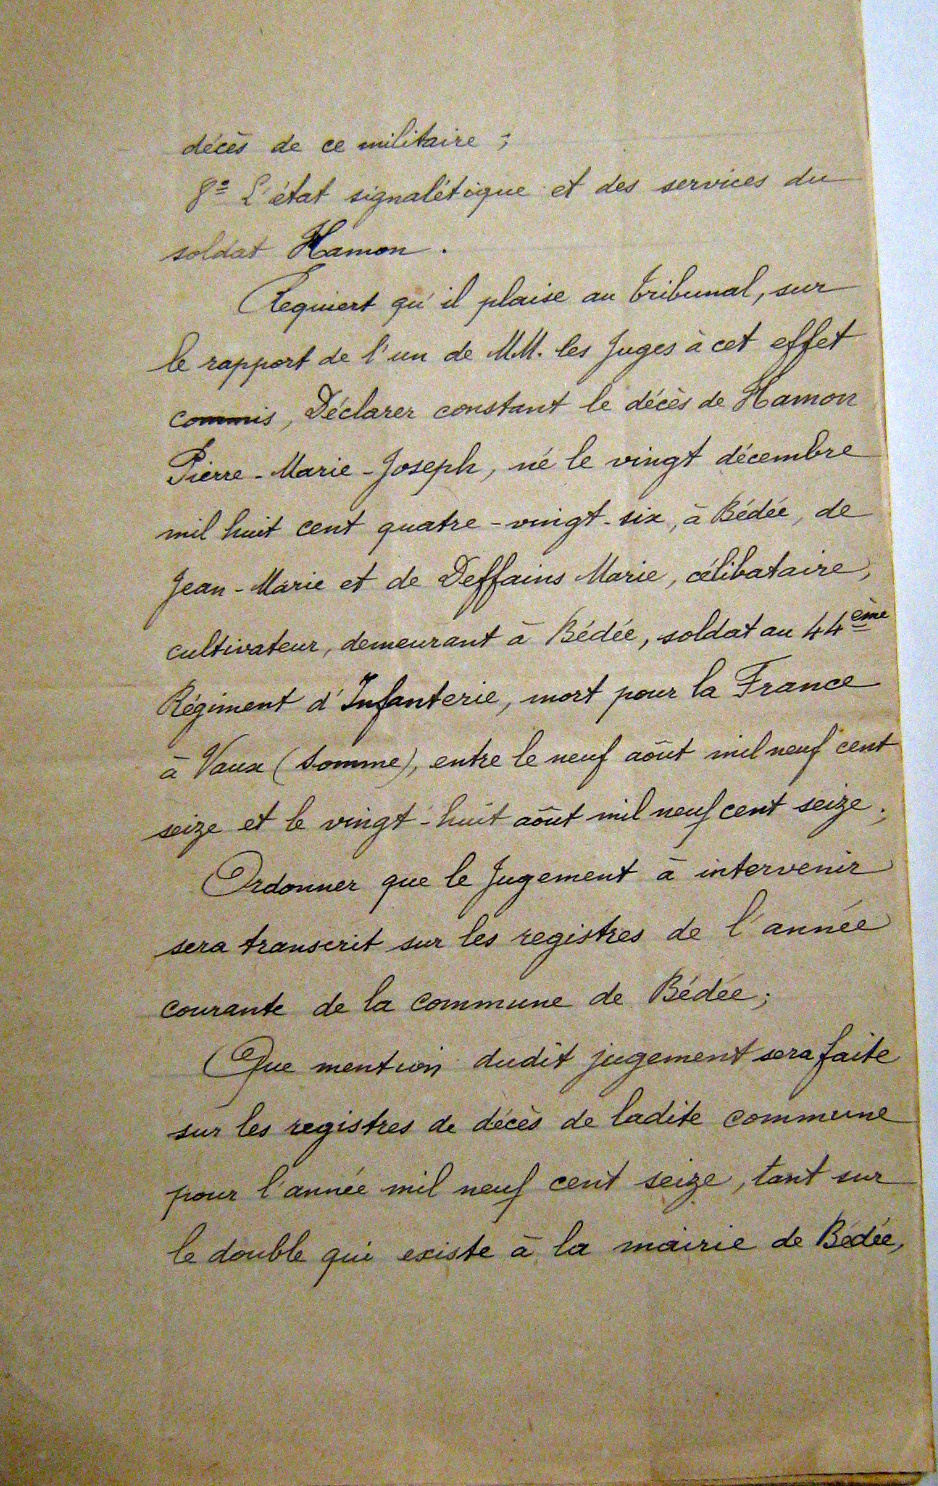 décès de ce militaire ;
8º L'état signalétique et des services du
soldat Hamon.
Requiert qu'il plaise au tribunal, sur
le rapport de l'un de MM. les Juges à cet effet
commis, Déclarer constant le décès de Hamon
Pierre-Marie-Joseph, né le vingt décembre
mil huit cent quatre-vingt-six, à Bédée, de
Jean-Marie et de Deffains Marie, célibataire,
cultivateur, demeurant à Bédée, soldat au 44ème
Régiment d'Infanterie, mort pour la France
à Vaux (Somme), entre le neuf août mil neuf cent
seize et le vingt-huit août mil neuf cent seize ;
Ordonner que le Jugement à intervenir
sera transcrit sur les registres de l'année
courante de la commune de Bédée ;
Que mention dudit jugement sera faite
sur les registres de décès de ladite commune
pour l'année mil neuf cent seize, tant sur
le double qui existe à la mairie de Bédée,